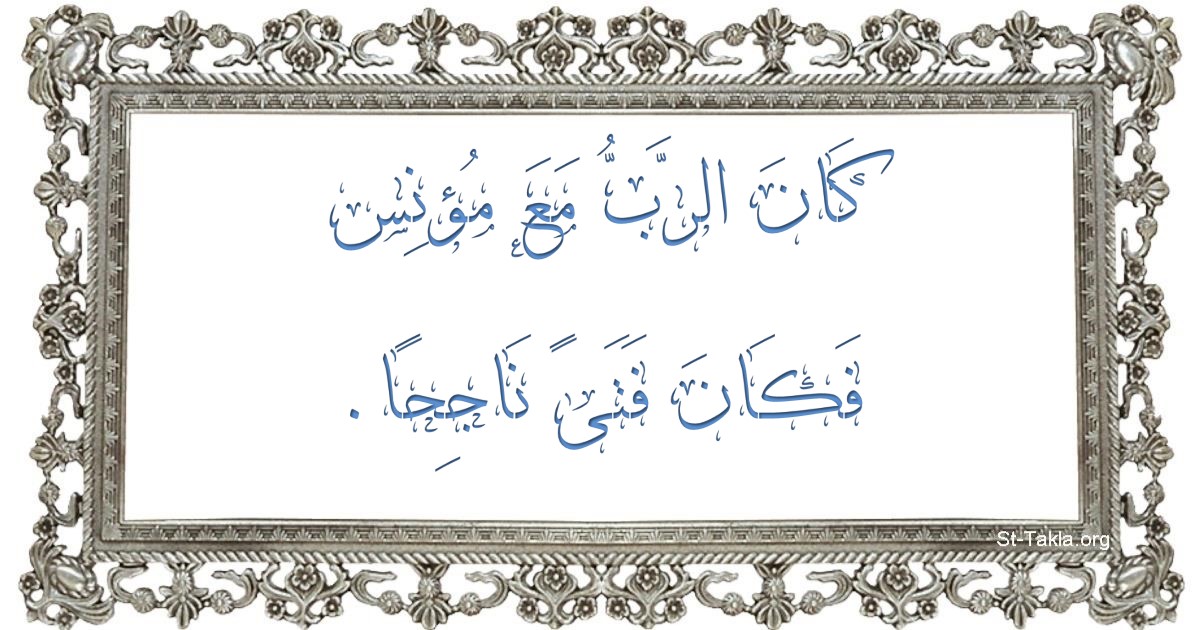 كَانَ الرَّبُّ مَعَ مُؤنِس
فَكَانَ فَتَىً نَاجِحًا .
St-Takla.org